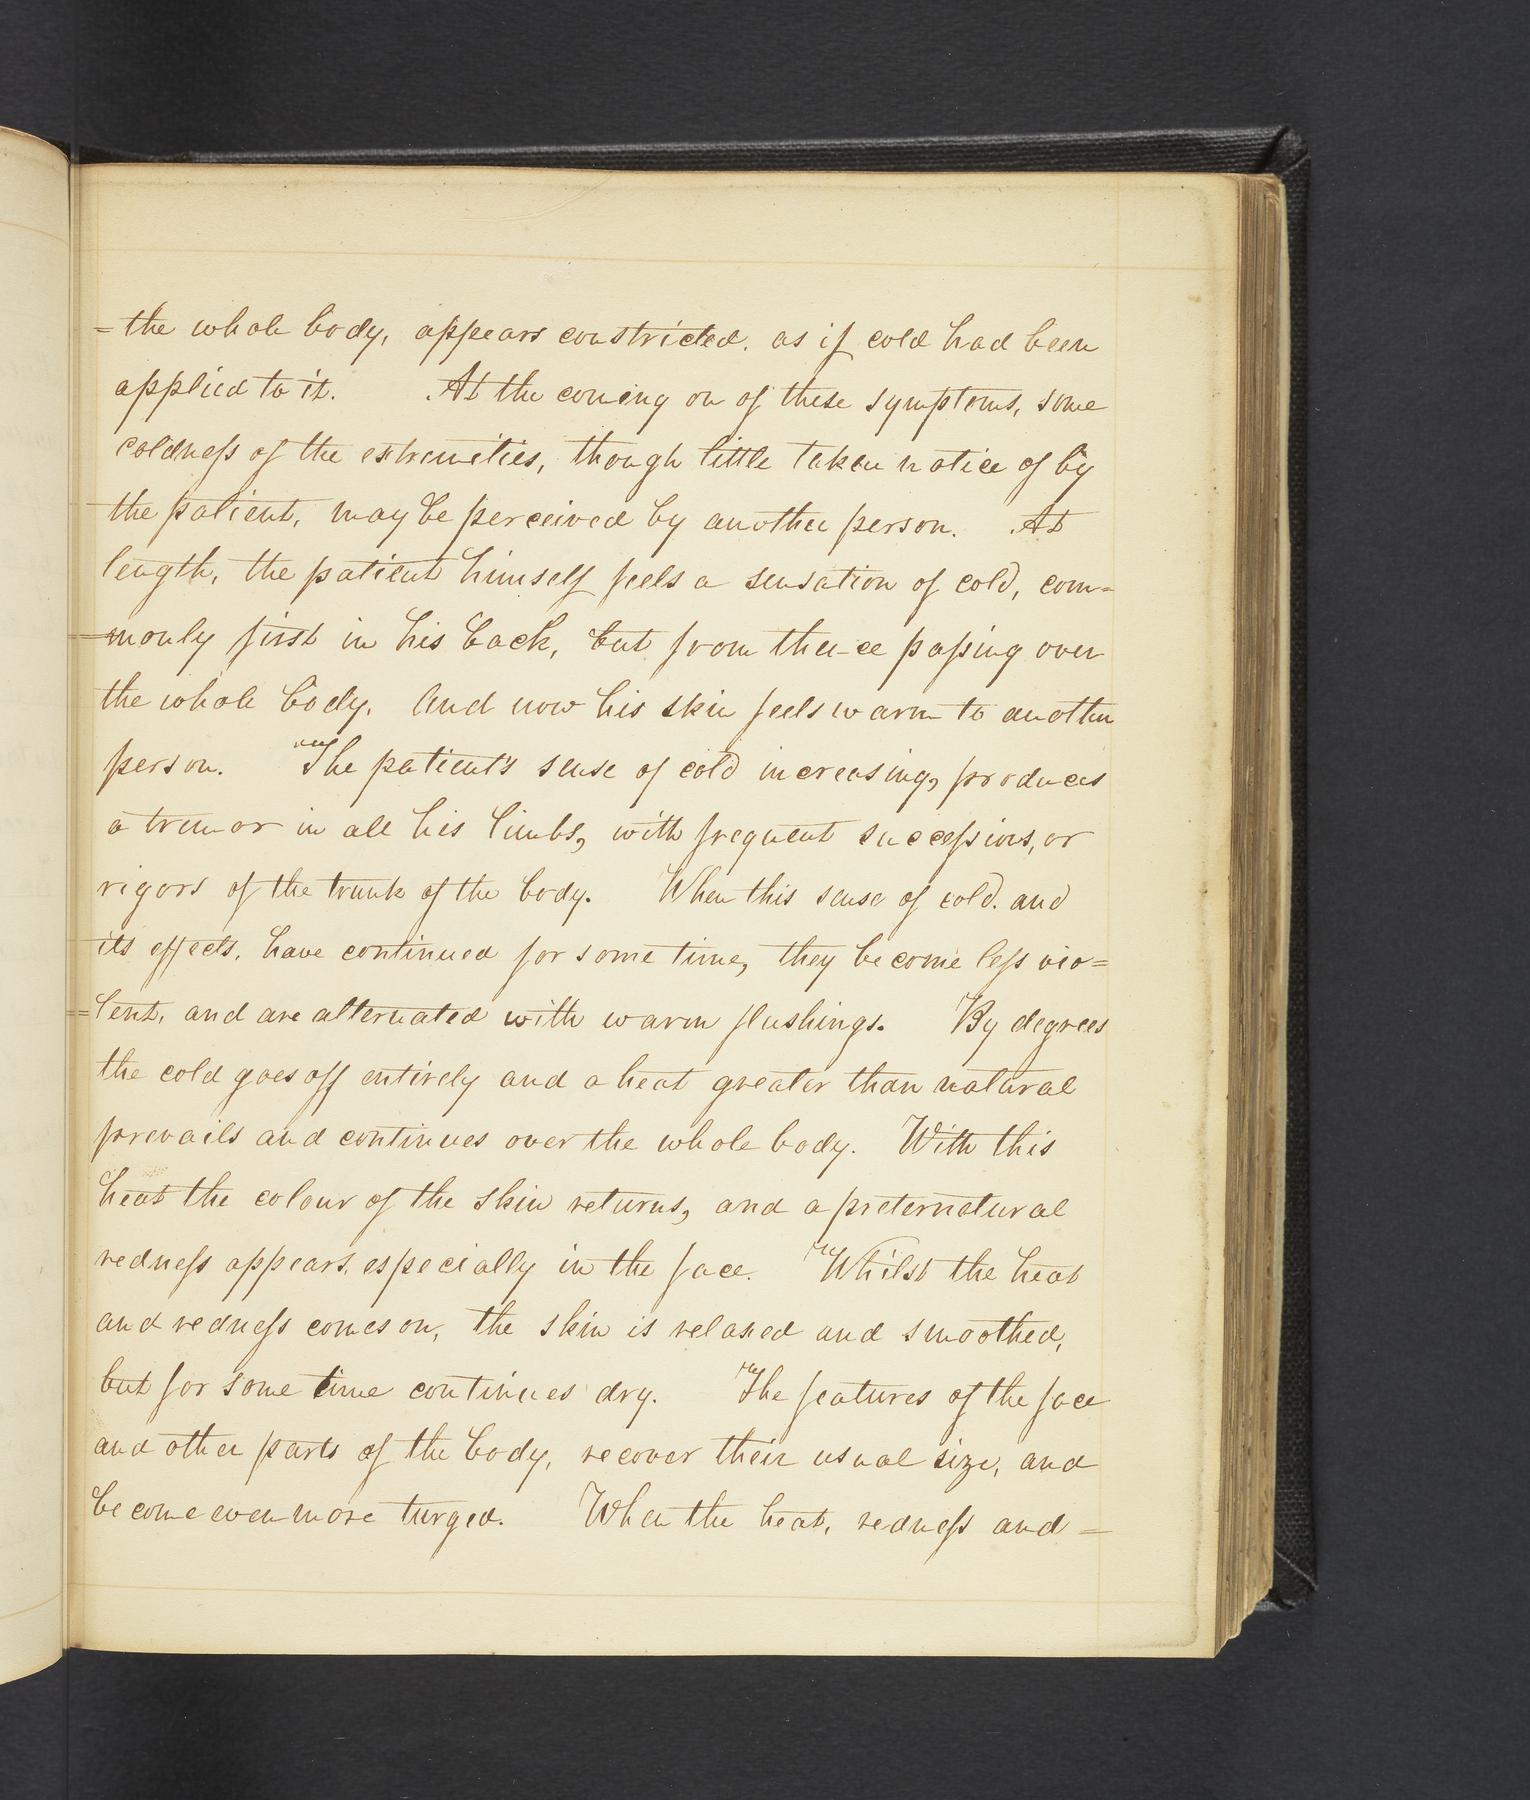 = the whole body, appears constricted, as if cold had been
applied to it. At the coming on of these symptoms, some
coldness of the extremities, though little taken notice of by
the patient, may be perceived by another person. At
length, the patient himself feels a sensation of cold, com=
=monly first in his back, but from thence passing over
the whole body. And now his skin feels warm to another
person. The patient's sense of cold increasing, produces
a tremor in all his limbs, with frequent successions, or
rigors of the trunk of the body. When this sense of cold. and
its effects, have continued for some time, they become less vio=
=lent, and are alternated with warm flushings. By degrees
the cold goes off entirely and a heat greater than natural
prevails and continues over the whole body. With this
heat the colour of the skin returns, and a preternatural
redness appears, especially in the face. Whilst the heat
and redness comes on, the skin is relaxed and smoothed,
but for some time continues dry. The features of the face
and other parts of the body, recover their usual size, and
become even more turged. When the heat, redness and =